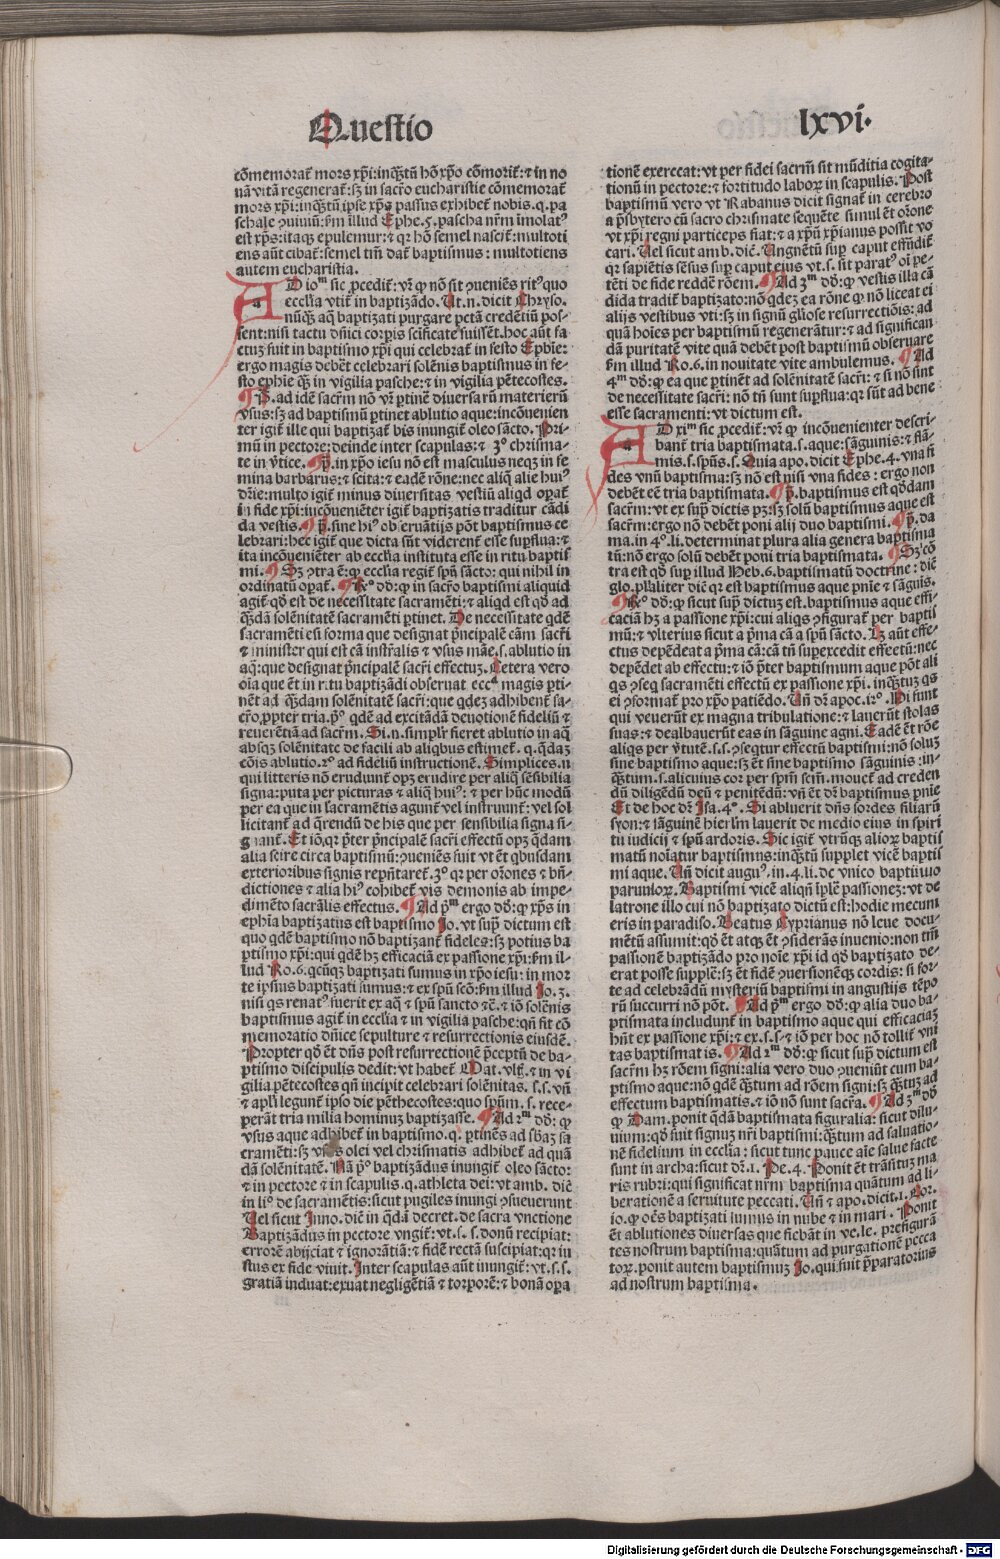 Questio
lxvi.
cōmemorat̄ mors xp̄i: inq̄ꝫtū hō xp̄o cōmorit̄: ⁊ in no
uā vitā regenerat̄: sꝫ in sacr̄o eucharistie cōmemorat̄
mors xp̄i: inq̄ꝫtū ip̄e xp̄s passus exhibet̄ nobis. q. pa
schale ꝯuiuiū: ẜm illud Ephe. 5. pascha nr̄m īmolatꝰ
est xp̄s: itaqꝫ epulemur: ⁊ qꝛ hō semel nascit̄: multoti
ens aūt cibat̄: semel tm̄ dat̄ baptismus: multotiens
autem eucharistia.
AD ioᵐ sic ꝓcedit̄: vr̄ ꝙ nō sit ꝯueniēs ritꝰ quo
eccl̄ia vtit̄ in baptizādo. Ut. n. dicit Chryso.
nūqꝫ aq̄ baptizati purgare pctā credētiū pos-
sent: nisi tactu dn̄ici corꝑis scificate fuissēt. hoc aūt fa
ctuꝫ fuit in baptismo xp̄i qui celebrat̄ in festo Ephie:
ergo magis debēt celebrari solēnis baptismus in fe-
sto ephie qꝫ in vigilia pasche: ⁊ in vigilia pētecostes.
¶ P̄. ad idē sacr̄m nō vr̄ ꝑtinē diuersarū materierū
vsus: sꝫ ad baptismū ꝑtinet ablutio aque: incōuenien
ter igit̄ ille qui baptizat̄ bis inungit̄ oleo sācto. Pri-
mū in pectore: deinde inter scapulas: ⁊ 3º chrisma-
te in v̄tice. ¶ P̄. in xp̄o iesu nō est masculus neqꝫ in fe
mina barbarus: ⁊ scita: ⁊ eadē rōne: nec aliq̄ alie huiꝰ
dr̄ie: multo igit̄ minus diuersitas vestiū aliqd oꝑat̄
in fide xp̄i: incōueniēter igit̄ baptizatis traditur cādi
da vestis. ¶ P̄. sine hiꝰ obseruātijs pōt baptismus ce
lebrari: hec igit̄ que dicta sūt viderent̄ esse supflua: ⁊
ita incōueniēter ab eccl̄ia instituta esse in ritu baptis
mi. ¶ Sꝫ ꝯtra ē: ꝙ eccl̄ia regit̄ spū sācto: qui nihil in
ordinatū oꝑat̄. ¶ Rº dd: ꝙ in sacr̄o baptismi aliquid
agit̄ qd est de necessitate sacramēti: ⁊ aliqd est qd ad
q̄ꝫdā solēnitatē sacramēti ꝑtinet. De necessitate qdē
sacramēti est forma que designat p̄ncipalē cām sacr̄i
⁊ minister qui est cā instr̄alis ⁊ vsus māe. s. ablutio in
aq̄: que designat p̄ncipalē sacr̄i effectuꝫ. Cetera vero
oīa que ēt in ritu baptizādi obseruat eccᵃ magis ꝑti-
nēt ad q̄ꝫdam solēnitatē sacr̄i: que qdeꝫ adhibent̄ sa-
cr̄o. ꝓpter tria. p̄º qdē ad excitādā deuotionē fideliū ⁊
reuerētiā ad sacr̄m. Si. n. simplr̄ fieret ablutio in aq̄
absqꝫ solēnitate de facili ab aliqbus estimet̄. q. q̄daꝫ
cōis ablutio. 2º ad fideliū instructionē. Simplices. n.
qui litteris nō erudiunt̄ opꝫ erudire per aliq̄ sēsibilia
signa: puta per picturas ⁊ aliq̄ huiꝰ: ⁊ per hūc modū
per ea que in sacramētis agunt̄ vel instruunt̄: vel sol
licitant̄ ad q̄rendū de his que per sensibilia signa si-
gnant̄. Et iō. qꝛ p̄ter p̄ncipalē sacr̄i effectū opꝫ q̄dam
alia scire circa baptismū: ꝯueniēs fuit vt ēt qbusdam
exterioribus signis repn̄taret̄. 3º qꝛ per orōnes ⁊ bn̄-
dictiones ⁊ alia hiꝰ cohibet̄ vis demonis ab impe-
dimēto sacr̄alis effectus. ¶ Ad p̄ᵐ ergo dd: ꝙ xp̄s in
ephīa baptizatus est baptismo Jo. vt sup̄ dictum est
quo qdē baptismo nō baptizant̄ fideles: sꝫ potius ba
ptismo xp̄i: qui qdē hꝫ efficaciā ex passione xp̄i: ẜm il-
lud Ro. 6. qcūqꝫ baptizati sumus in xp̄o iesu: in mor
te ip̄sius baptizati sumus: ⁊ ex spū scō: ẜm illud Jo. 3.
nisi qs renatꝰ fuerit ex aq̄ ⁊ spū sancto ⁊c. ⁊ iō solēnis
baptismus agit̄ in eccl̄ia ⁊ in vigilia pasche: qn̄ fit cō
memoratio dn̄ice sepulture ⁊ resurrectionis eiusdē.
Propter qd ēt dn̄s post resurrectionē p̄ceptū de ba-
ptismo discipulis dedit: vt habet̄ Mat. vlt̄. ⁊ in vi
gilia pētecostes qn̄ incipit celebrari solēnitas. s. s. vn̄
⁊ apl̄i legunt̄ ipso die pēthecostes: quo spūm. s. rece-
perāt tria milia hominuꝫ baptizasse. ¶ Ad 2ᵐ dd: ꝙ
vsus aque adhibet̄ in baptismo. q. ꝑtinēs ad sb̄aꝫ sa
cramēti: sꝫ vsus olei vel chrismatis adhibet̄ ad quā
dā solēnitatē. Nā p̄º baptizādus inungit̄ oleo sācto:
⁊ in pectore ⁊ in scapulis. q. athleta dei: vt amb. dic̄
in liº de sacramētis: sicut pugiles inungi ꝯsueuerunt
Uel sicut Inno. dic̄ in q̄dā decret. de sacra vnctione
Baptizādus in pectore vngit̄: vt. s. s. donū recipiat:
errorē abijciat ⁊ ignorātiā: ⁊ fidē rectā suscipiat: qꝛ iu
stus ex fide viuit. Inter scapulas aūt inungit̄: vt. s. s.
gratiā induat: exuat negligētiā ⁊ torporē: ⁊ bonā oꝑa
tionē exerceat: vt per fidei sacrm̄ sit mūditia cogita-
tionū in pectore: ⁊ fortitudo laboꝝ in scapulis. Post
baptismū vero vt Rabanus dicit signat̄ in cerebro
a p̄sbytero cū sacro chrismate sequēte simul ēt orōne
vt xp̄i regni particeps fiat: ⁊ a xp̄ū xp̄ianus possit vo
cari. Uel sicut amb. dic̄. Ungnētū sup̄ caput effūdit̄
qꝛ sapiētis sēsus sup̄ caput eius vt. s. sit paratꝰ oī pe-
tēti de fide reddē rōem. ¶ Ad 3ᵐ dd: ꝙ vestis illa cā
dida tradit̄ baptizato: nō qdeꝫ ea rōne ꝙ nō liceat ei
alijs vestibus vti: sꝫ in signū gl̄iose resurrectiōis: ad
quā hoīes per baptismū regenerātur: ⁊ ad significan
dā puritatē vite quā debēt post baptismū obseruare
ẜm illud Ro. 6. in nouitate vite ambulemus. ¶ Ad
4ᵐ dd: ꝙ ea que ꝑtinēt ad solēnitatē sacr̄i: ⁊ si nō sint
de necessitate sacr̄i: nō tn̄ sunt supflua: qꝛ sūt ad bene
esse sacramenti: vt dictum est.
AD xiᵐ sic ꝓcedit̄: vr̄ ꝙ incōuenienter descri-
bant̄ tria baptismata. s. aque: sāguinis: ⁊ flā-
mis. s. spūs. s. Quia apo. dicit Ephe. 4. vna fi
des vnū baptisma: sꝫ nō est nisi vna fides: ergo non
debēt cē tria baptismata. ¶ P̄. baptismus est qddam
sacr̄m: vt ex sup̄ dictis pꝫ: sꝫ solū baptismus aque est
sacr̄m: ergo nō debēt poni alij duo baptismi. ¶ P̄. da
ma. in 4º. li. determinat plura alia genera baptisma
tū: nō ergo solū debēt poni tria baptismata. ¶ Sꝫ cō
tra est qd sup illud Heb. 6. baptismatū doctrine: dic̄
glo. pl̄aliter dic̄ qꝛ est baptismus aque pn̄ie ⁊ sāguis.
¶ Rº dd: ꝙ sicut sup̄ dictuꝫ est. baptismus aque effi-
caciā hꝫ a passione xp̄i: cui aliqs ꝯfigurat̄ per baptis
mū: ⁊ vlterius sicut a p̄ma cā a spū sācto. Lꝫ aūt effe-
ctus depēdeat a p̄ma cā: cā tn̄ supexcedit effectū: nec
depēdet ab effectu: ⁊ iō p̄ter baptismum aque pōt ali
qs ꝯseq sacramēti effectū ex passione xp̄i. inq̄ꝫtuꝫ qs
ei ꝯformat̄ pro xp̄o patiēdo. Un̄ dr̄ apoc. 12º. Hi sunt
qui venerūt ex magna tribulatione: ⁊ lauerūt stolas
suas: ⁊ dealbauerūt eas in sāguine agni. Eadē ēt rōe
aliqs per v̄tutē. s. s. ꝯseqtur effectū baptismi: nō soluꝫ
sine baptismo aque: sꝫ ēt sine baptismo sāguinis: in-
q̄ꝫtum. s. alicuius cor per spm̄ scm̄. mouet̄ ad creden
dū diligēdū deū ⁊ penitēdū: vn̄ ēt dr̄ baptismus pnie
Et de hoc dr̄ Isa. 4º. Si abluerit dn̄s sordes filiarū
syon: ⁊ sāguinē hierlm̄ lauerit de medio eius in spiri
tu iudicij ⁊ spū ardoris. Sic igit̄ vtrūqꝫ alioꝝ baptis
matū noiatur baptismus: inq̄ꝫtū supplet vicē baptis
mi aque. Un̄ dicit auguꝰ. in. 4. li. de vnico baptismo
paruuloꝝ. Baptismi vicē aliqn̄ īplē passioneꝫ: vt de
latrone illo cui nō baptizato dictū est: hodie mecum
eris in paradiso. Beatus Cyprianus nō leue docu-
mētū assumit: qd ēt atqꝫ ēt ꝯsiderās inuenio: non tm̄
passionē baptizādo pro noīe xp̄i id qd baptizato de-
erat posse supplē: sꝫ ēt fidē ꝯuersionēqꝫ cordis: si for-
te ad celebrādū mysteriū baptismi in angustijs tēpo
rū succurri nō pōt. ¶ Ad p̄ᵐ ergo dd: ꝙ alia duo ba-
ptismata includunt̄ in baptismo aque qui efficaciaꝫ
hn̄t ex passione xp̄i: ⁊ ex. s. s. ⁊ iō per hoc nō tollit̄ vni
tas baptismatis. ¶ Ad 2ᵐ dd: ꝙ sicut sup̄ dictum est
sacr̄m hꝫ rōem signi: alia vero duo ꝯueniūt cum ba-
ptismo aque: nō qdē q̄ꝫtum ad rōem signi: sꝫ q̄ꝫtuꝫ ad
effectum baptismatis. ⁊ iō nō sunt sacr̄a. ¶ Ad 3ᵐ dd
ꝙ Dam. ponit q̄dā baptismata figuralia: sicut dilu-
uium: qd fuit signuꝫ nr̄i baptismi: q̄ꝫtum ad saluatio-
nē fidelium in eccl̄ia: sicut tunc pauce aīe salue facte
sunt in archa: sicut dr̄. 1. Pe. 4. Ponit ēt trāsituꝫ ma
ris rubri: qui significat nr̄m baptisma quātum ad li-
berationē a seruitute peccati. Un̄ ⁊ apo. dicit. 1. Cor.
10. ꝙ oēs baptizati sumus in nube ⁊ in mari. Ponit
ēt ablutiones diuersas que fiebāt in ve. le. prefigurā
tes nostrum baptisma: quātum ad purgationē pecca
toꝝ. ponit autem baptismuꝫ Jo. qui fuit p̄paratorius
ad nostrum baptisma.
Digitalisierung gefördert durch die Deutsche Forschungsgemeinschaft - DFG